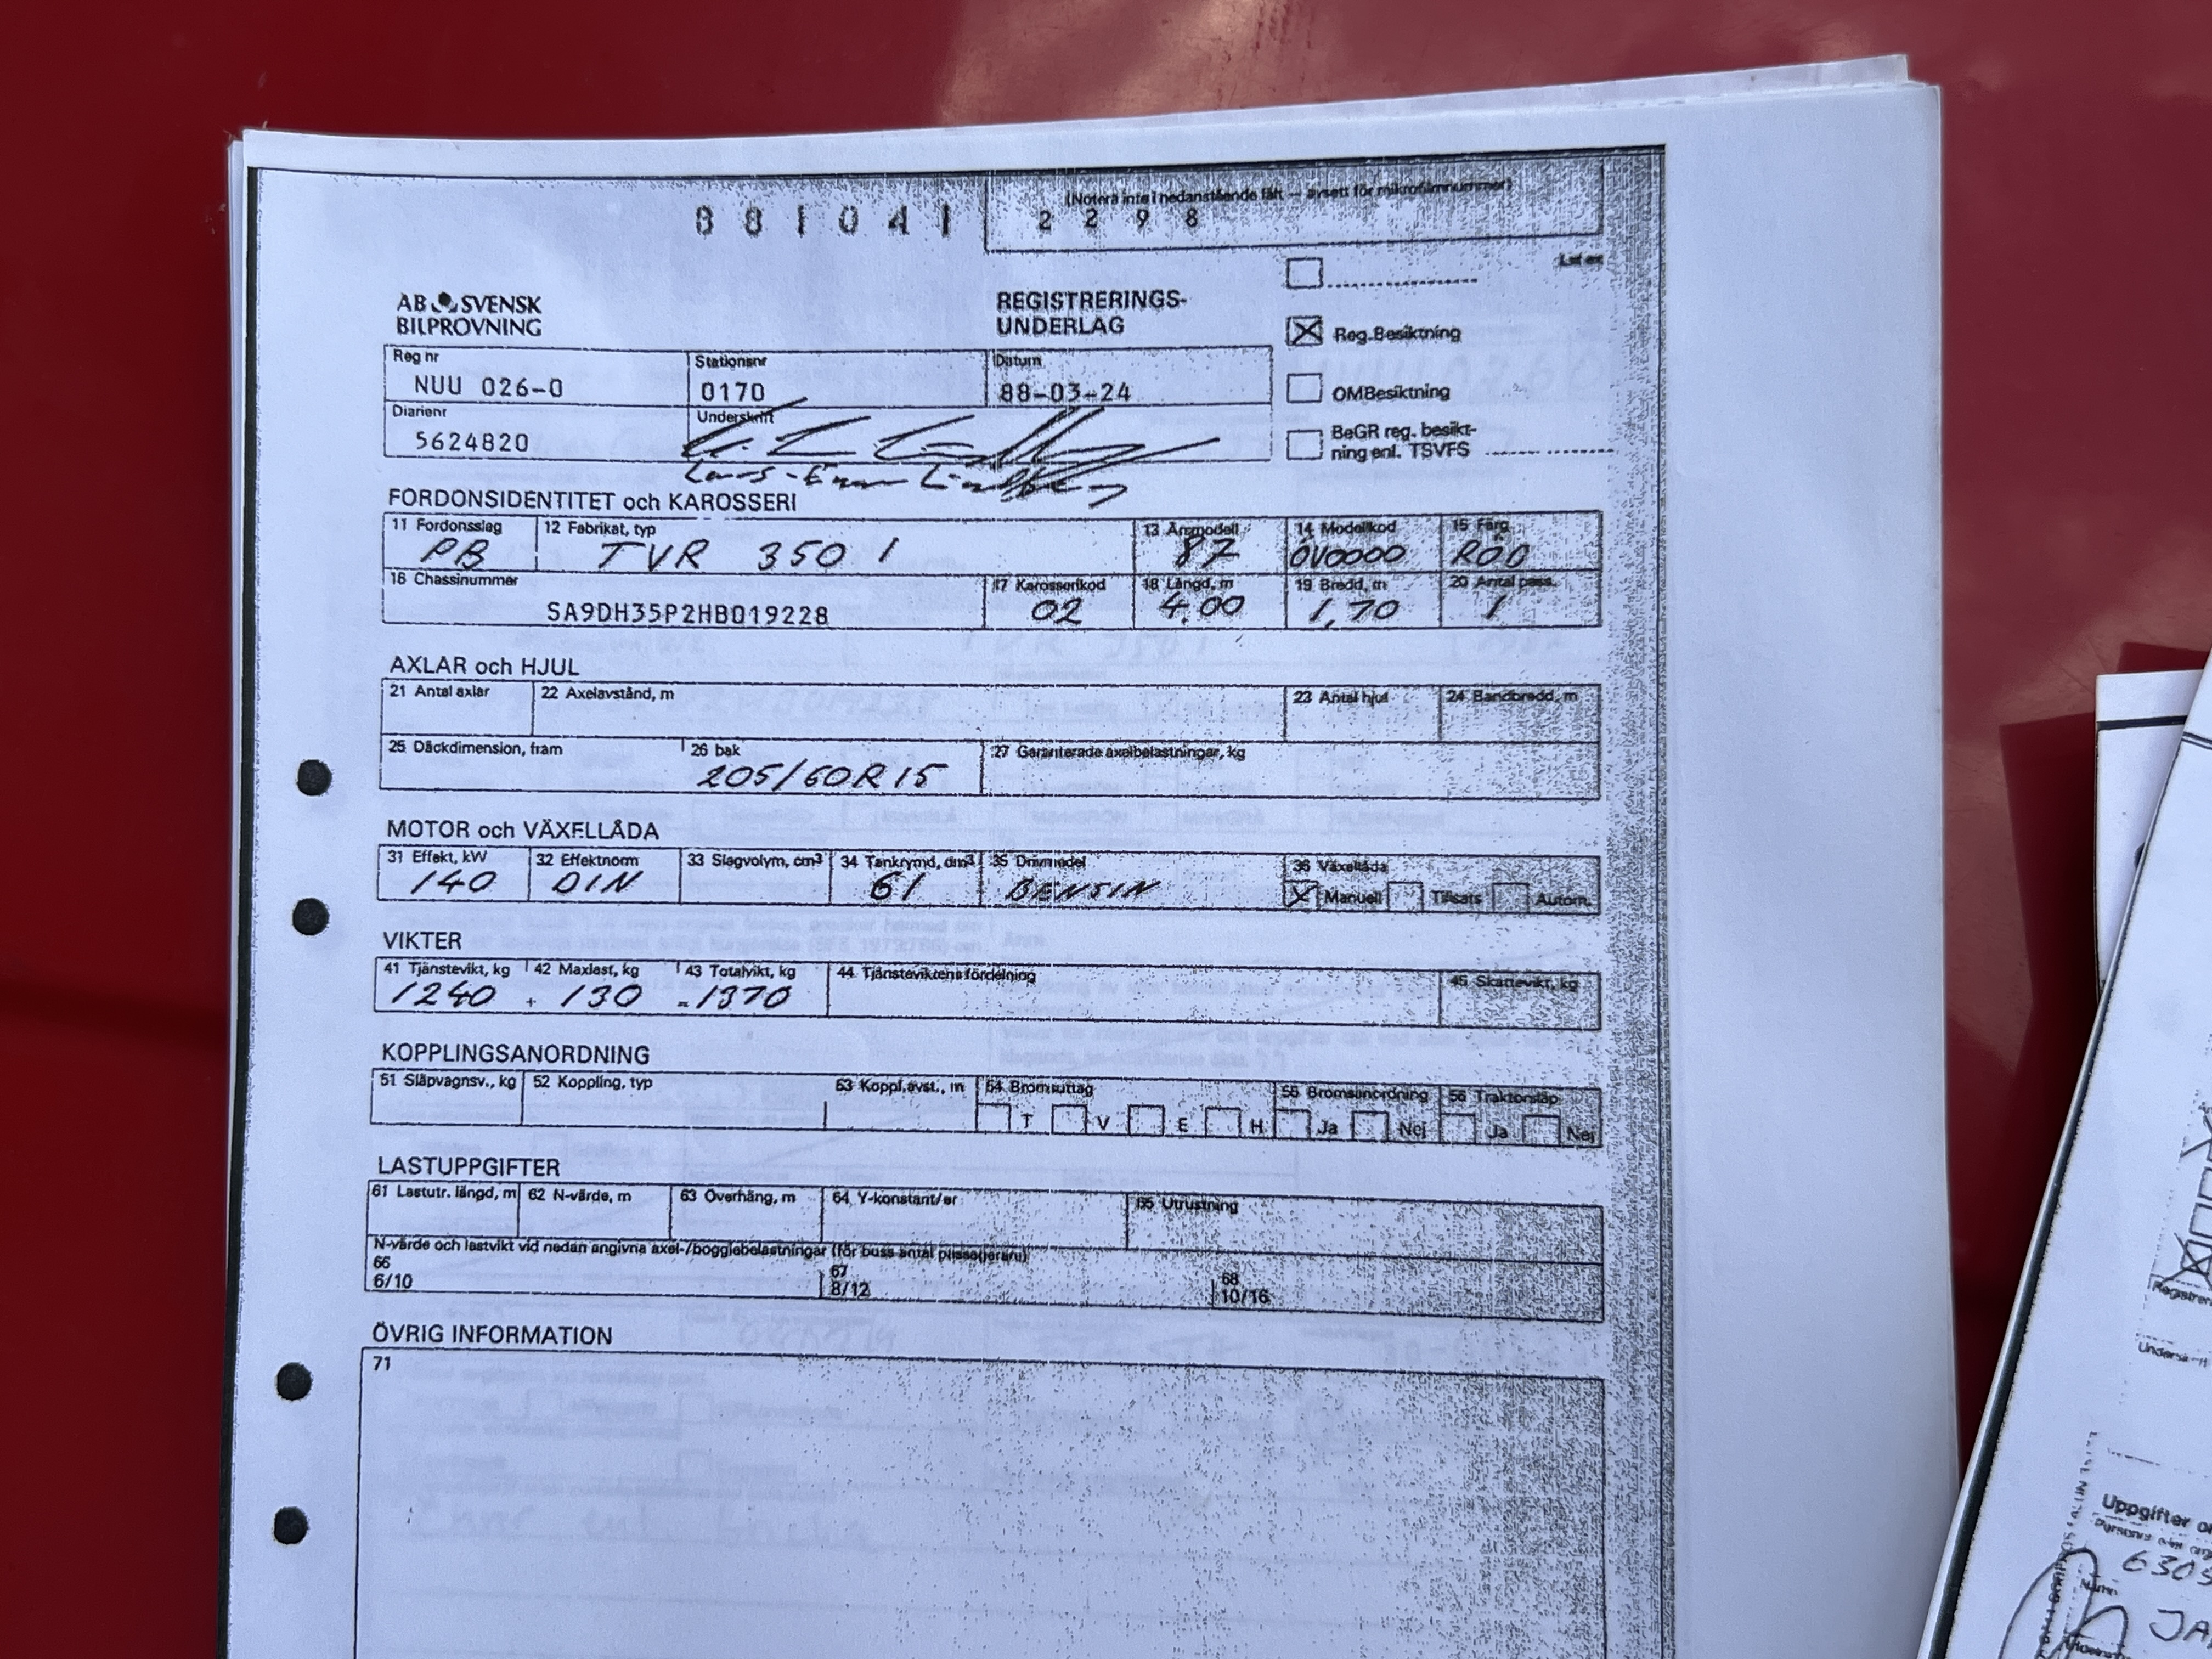 (Notera inte i nedanstående fält — avsett för mikrofilmnummer)
881041 2298
AB SVENSK
BILPROVNING
REGISTRERINGS-
UNDERLAG
Reg.Besiktning
OMBesiktning
BeGR reg. besikt-
ning enl. TSVFS
Reg nr Stationsnr Datum
NUU 026-0 0170 88-03-24
Diarienr Underskrift
5624820
FORDONSIDENTITET och KAROSSERI
11 Fordonsslag 12 Fabrikat, typ 13 Årsmodell 14 Modellkod 15 Färg
PB TVR 350 I 87 OV0000 RÖD
16 Chassinummer 17 Karosserikod 18 Längd, m 19 Bredd, m 20 Antal pass.
SA9DH35P2HB019228 02 4.00 1,70 1
AXLAR och HJUL
21 Antal axlar 22 Axelavstånd, m 23 Antal hjul 24 Bandbredd, m
25 Däckdimension, fram 26 bak 27 Garanterade axelbelastningar, kg
205/60R15
MOTOR och VÄXELLÅDA
31 Effekt, kW 32 Effektnorm 33 Slagvolym, cm³ 34 Tankrymd, dm³ 35 Drivmedel 36 Växellåda
140 DIN 61 BENSIN Manuell Tillsats Autom.
VIKTER
41 Tjänstevikt, kg 42 Maxlast, kg 43 Totalvikt, kg 44 Tjänsteviktens fördelning 45 Skattevikt, kg
1240 + 130 = 1370
KOPPLINGSANORDNING
51 Släpvagnsv., kg 52 Koppling, typ 53 Koppl.avst., m 54 Bromsuttag 55 Bromsanordning 56 Traktorsläp
T V E H Ja Nej Ja Nej
LASTUPPGIFTER
61 Lastutr. längd, m 62 N-värde, m 63 Överhäng, m 64 Y-konstant/er 65 Utrustning
N-värde och lastvikt vid nedan angivna axel-/boggiebelastningar (för buss antal passagerare)
66 67 68
6/10 8/12 10/16
ÖVRIG INFORMATION
71
Uppgifter